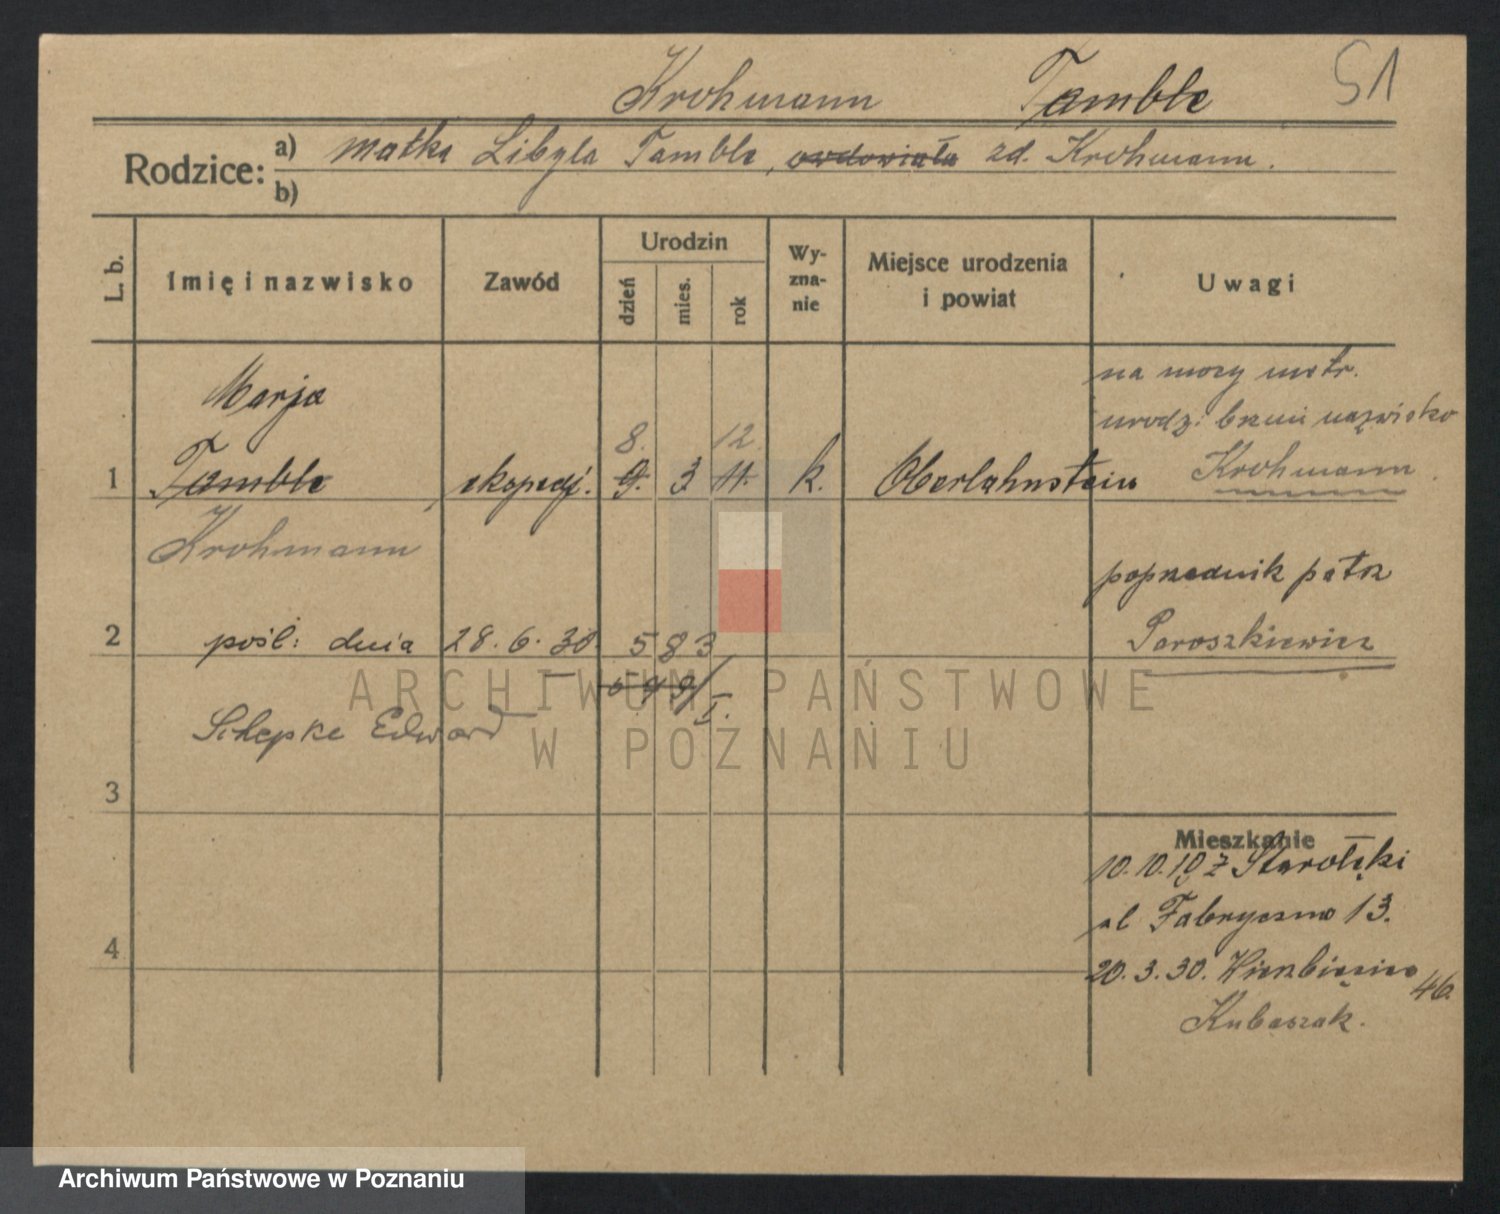 51
Krohmann Tamble
Rodzice: a) matka Libyla Tamble, owdowiała zd. Krohmann.
b)
L. b.
Imię i nazwisko
Zawód
Urodzin
dzień
mies.
rok
Wy-
zna-
nie
Miejsce urodzenia
i powiat
Uwagi
na mocy metr.
urodz: brzmi nazwisko
Krohmann.
Marja
8. 12.
1 Tamble, ekspedj. 9. 3 11. k. Oberlahnstein
Krohmann
poprzednik patrz
Paroszkiewicz
2 pośl: dnia 28.6.30. 583
I.
Schepke Edward
3
Mieszkanie
10.10.19 z Starołęki
ul Fabryczna 13.
4
20.3.30. Wierzbięcice 46.
Kubaszak.
ARCHIWUM PAŃSTWOWE
W POZNANIU
Archiwum Państwowe w Poznaniu